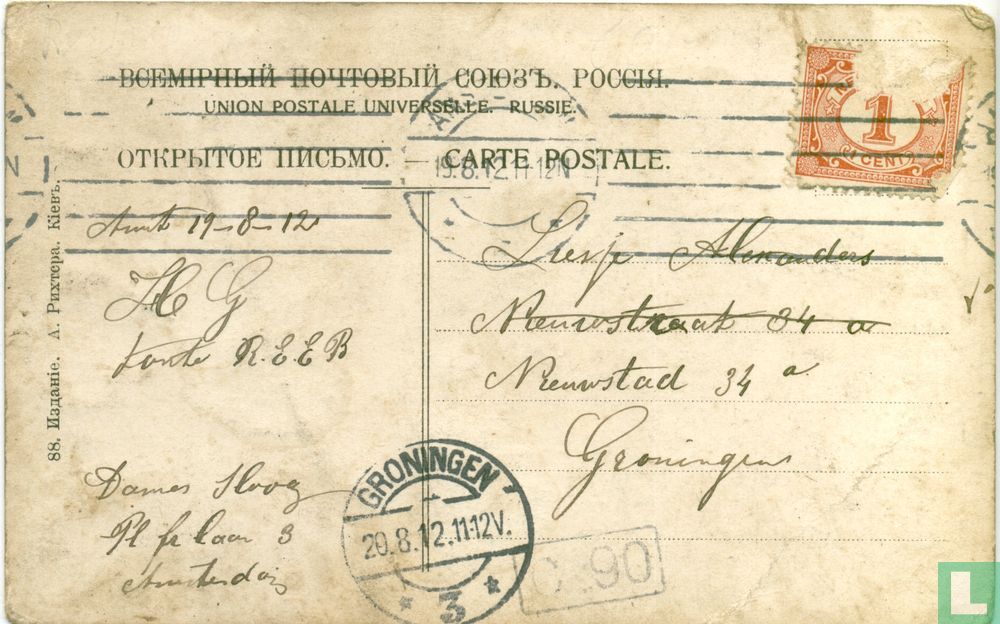 ВСЕМІРНЫЙ ПОЧТОВЫЙ СОЮЗЪ. РОССІЯ.
UNION POSTALE UNIVERSELLE. RUSSIE.
ОТКРЫТОЕ ПИСЬМО. — CARTE POSTALE.
19.8.12.11-12N
1
CENT
88. Изданіе. А. Рихтера. Кіевъ.
Amst 19-8-12
H G
tante R.E.E B
Dames
3
Amsterdam
Liesje Alexanders
Nieuwstraat 34 a
Nieuwstad 34 a
Groningen
GRONINGEN
20.8.12.11-12V.
* 3 *
90
L